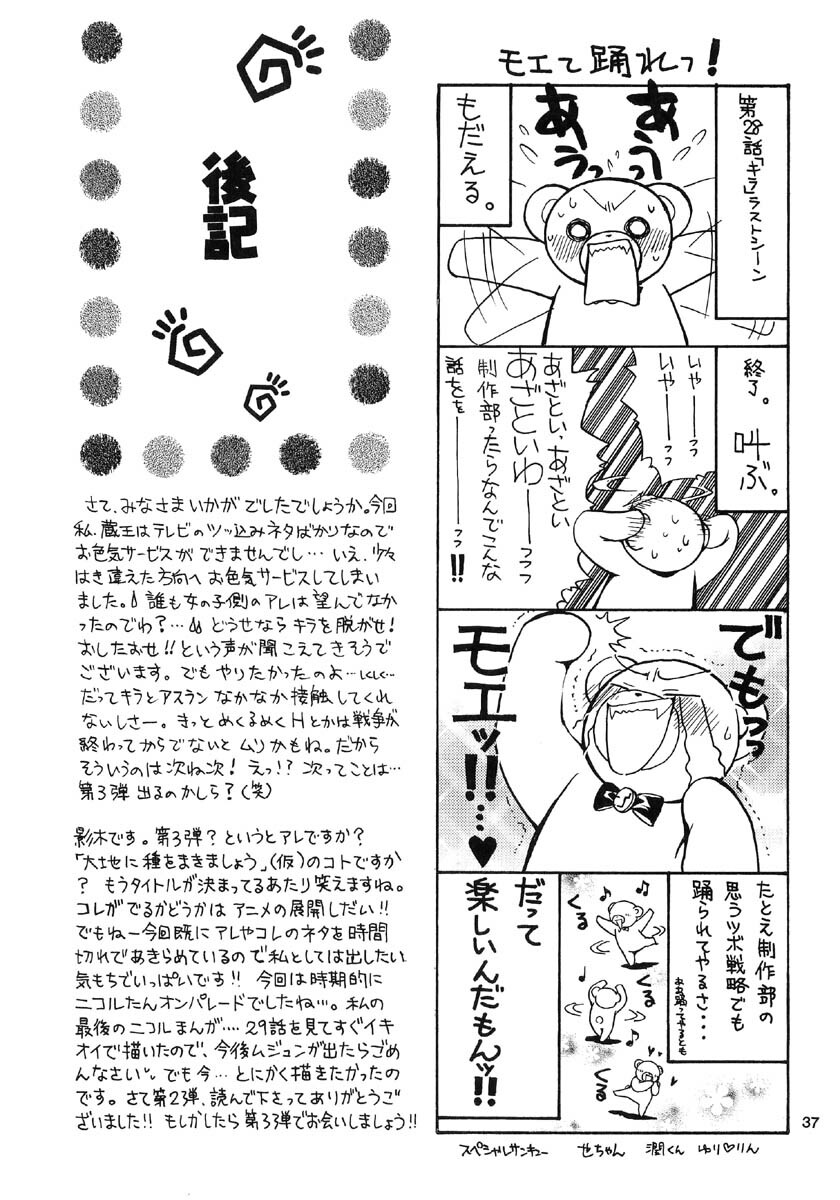 モエて踊れっ!
第28話「キラ」ラストシーン
もだえる。
あうっ
あうっ
終了。
叫ぶ。
いやーーっっ
いやーーっっ
あざとい、あざとい
あざといわーーっっっ
制作部ったらなんでこんな
話ををーーーっっ!!
でもっっ
モエッ!!…♥
たとえ制作部の
思うツボ戦略でも
踊られてやるさ…
ああ踊ってやるとも
くる
くる
くる
だって
楽しいんだもんッ!!
スペシャルサンキュー 也ちゃん 潤くん ゆり♡りん
後記
さて、みなさまいかがでしたでしょうか。今回
私、蔵王はテレビのツッ込みネタばかりなので
お色気サービスができませんでし…いえ、少々
はき違えた方向へお色気サービスしてしまい
ました。誰も女の子側のアレは望んでなか
ったのでわ?…どうせならキラを脱がせ!
おしたおせ!!という声が聞こえてきそうで
ございます。でもやりたかったのよ…
だってキラとアスランなかなか接触してくれ
ないしさー。きっとめくるめくHとかは戦争が
終わってからでないとムリかもね。だから
そういうのは次ね次! えっ!? 次ってことは…
第3弾出るのかしら?(笑)
影木です。第3弾?というとアレですか?
「大地に種をまきましょう」(仮)のコトですか
? もうタイトルが決まってるあたり笑えますね。
コレがでるかどうかはアニメの展開しだい!!
でもねー今回既にアレやコレのネタを時間
切れであきらめているので私としては出したい
気もちでいっぱいです!! 今回は時期的に
ニコルたんオンパレードでしたね…。私の
最後のニコルまんが…29話を見てすぐイキ
オイで描いたので、今後ムジュンが出たらごめ
んなさい。でも今…とにかく描きたかったの
です。さて第2弾、読んで下さってありがとうご
ざいました!! もしかしたら第3弾でお会いしましょう!!
37